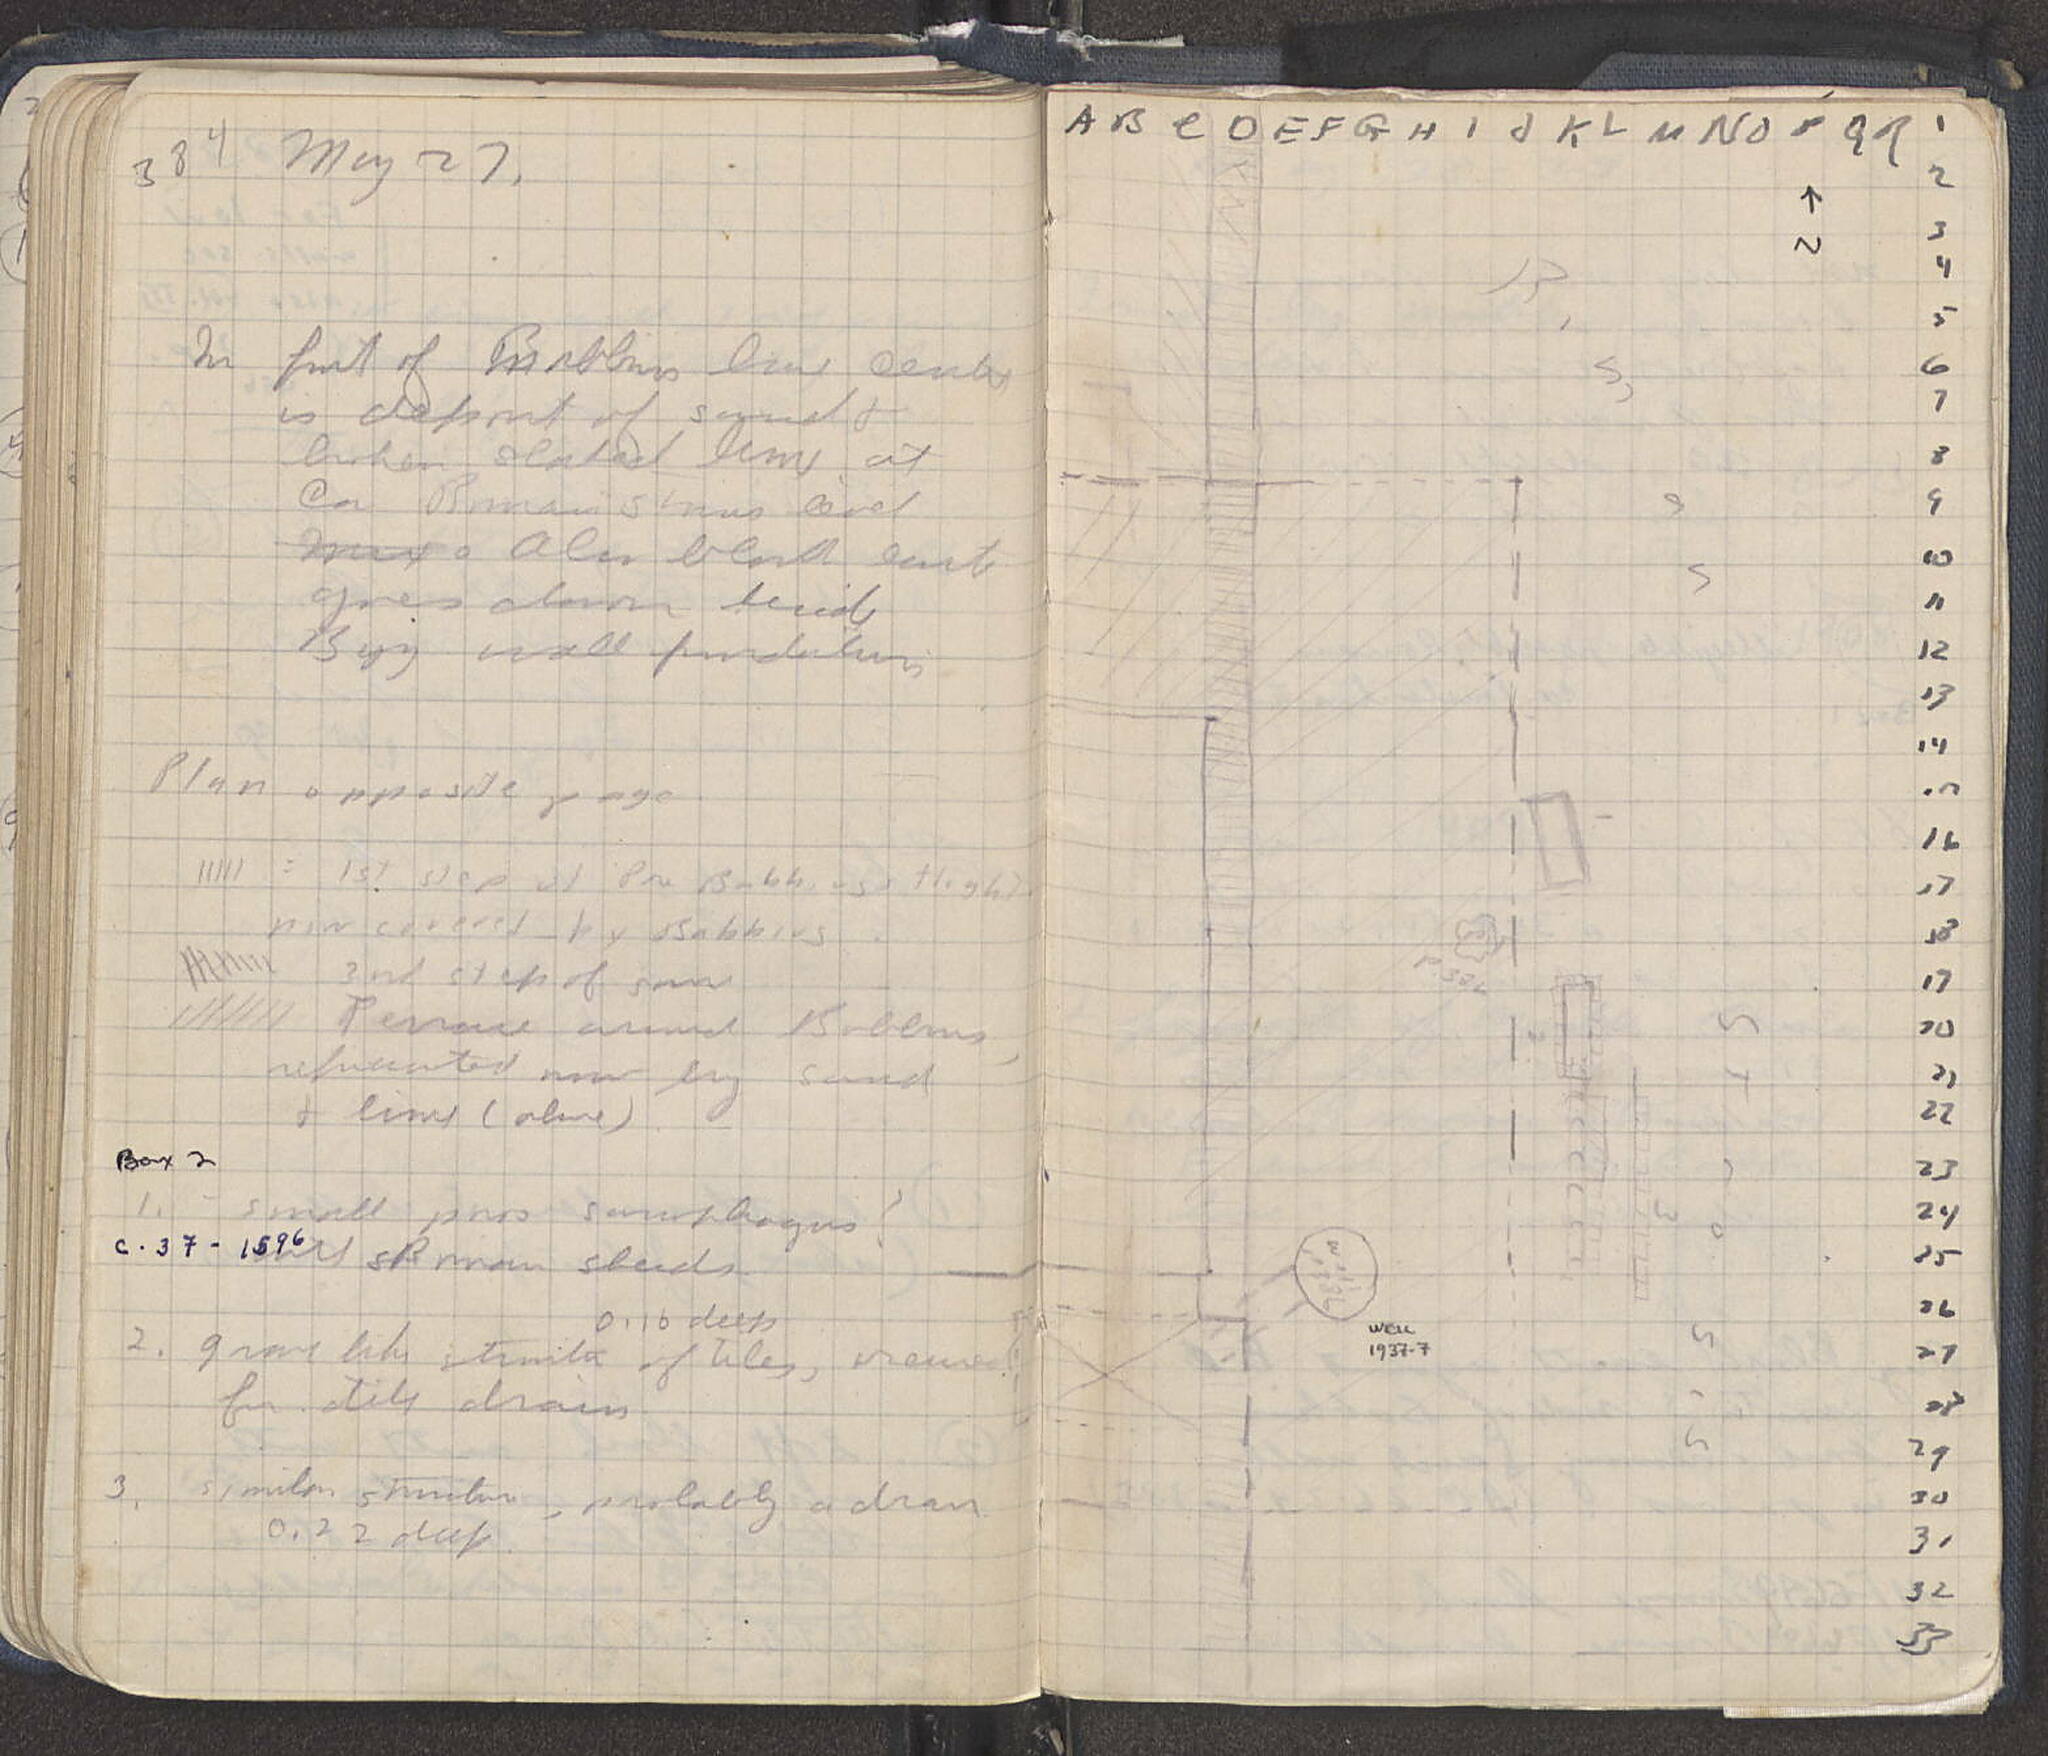 384 May 27.
In front of Babbius line center
is deposit of sand &
broken slaked lime at
ca Roman stoas level
Also black earth
goes down beside
Byz wall foundations
Plan opposite page
///// = 1st step of Pre Babbius flight
now covered by Babbius.
2nd step of same
Terrace around Babbius,
represented now by sand
& lime (above)
Box 2
1. small poros sarcophagus?
C.37-1596 Roman sherds
0.16 deep
2. grave like structure of tiles,
for tile drain
3. similar structure, probably a drain
0.22 deep.
A B C D E F G H I J K L M N O P Q R
1
2
3
4
5
6
7
8
9
10
11
12
13
14
15
16
17
18
19
20
21
22
23
24
25
26
27
28
29
30
31
32
33
N
3
WELL
1937-7